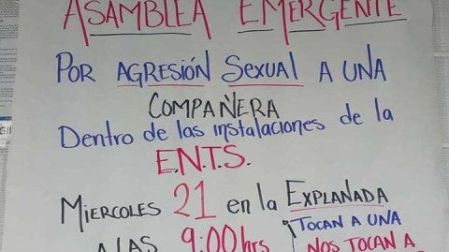 ASAMBLEA EMERGENTE
POR AGRESIÓN SEXUAL A UNA
COMPAÑERA
Dentro de las instalaciones de la
E.N.T.S.
MIERCOLES 21 en la EXPLANADA
A LAS 9:00hrs ¡TOCAN A UNA
NOS TOCAN A